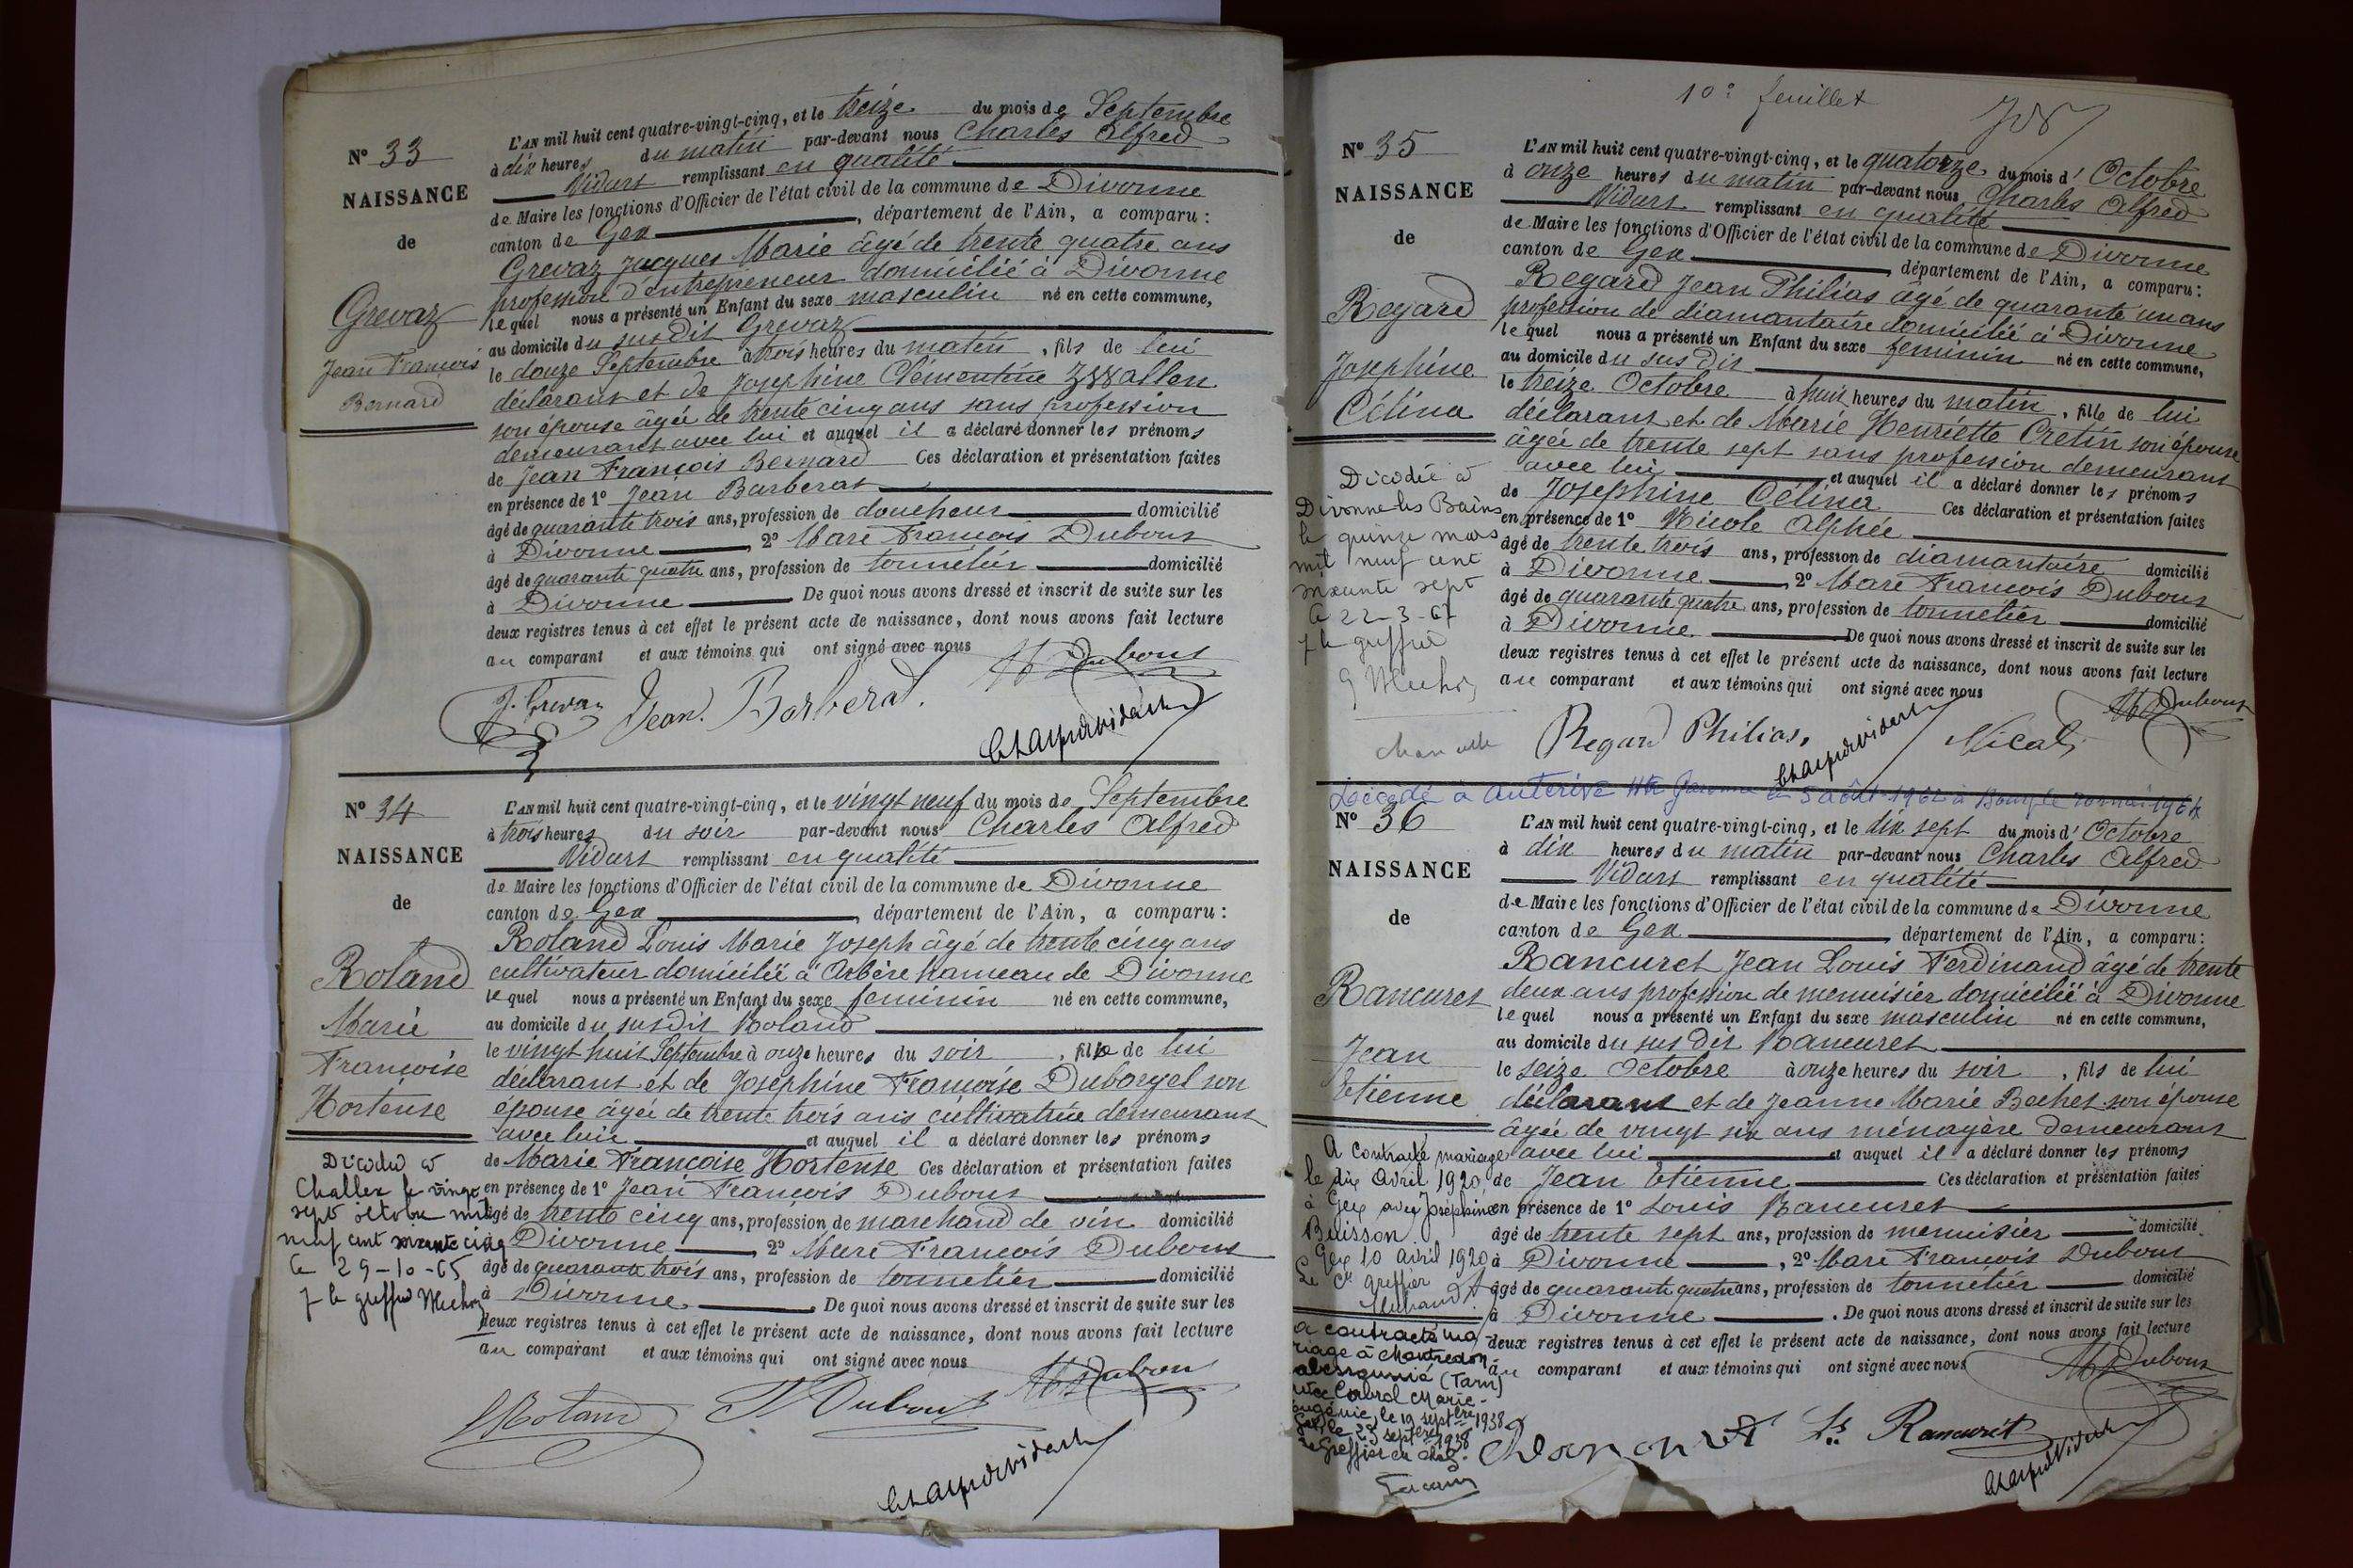 N° 33
NAISSANCE
de
Grevaz
Jean François
Bernard
L'AN mil huit cent quatre-vingt-cinq, et le treize du mois de Septembre
à dix heures du matin par-devant nous Charles Alfred
Vidart remplissant en qualité
de Maire les fonctions d'Officier de l'état civil de la commune de Divonne
canton de Gex, département de l'Ain, a comparu :
Grevaz Jacques Marie âgé de trente quatre ans
profession d'entrepreneur domicilié à Divonne
lequel nous a présenté un Enfant du sexe masculin né en cette commune,
au domicile du susdit Grevaz
le douze Septembre à trois heures du matin, fils de lui
déclarant et de Josephine Clémentine
son épouse âgée de trente cinq ans sans profession
demeurant avec lui et auquel il a déclaré donner les prénoms
de Jean François Bernard Ces déclaration et présentation faites
en présence de 1° Jean Barberat
âgé de quarante trois ans, profession de doucheur domicilié
à Divonne, 2° Marc François Dubout
âgé de quarante quatre ans, profession de tonnelier domicilié
à Divonne De quoi nous avons dressé et inscrit de suite sur les
deux registres tenus à cet effet le présent acte de naissance, dont nous avons fait lecture
au comparant et aux témoins qui ont signé avec nous
J. Grevaz Jean Barberat. Dubout
N° 34
NAISSANCE
de
Roland
Marie
Françoise
Hortense
Décédée à
Challex le vingt
sept octobre mil
neuf cent soixante cinq
le 29-10-65
p le greffier
L'AN mil huit cent quatre-vingt-cinq, et le vingt neuf du mois de Septembre
à trois heures du soir par-devant nous Charles Alfred
Vidart remplissant en qualité
de Maire les fonctions d'Officier de l'état civil de la commune de Divonne
canton de Gex, département de l'Ain, a comparu :
Roland Louis Marie Joseph âgé de trente cinq ans
cultivateur domicilié à Arbère hameau de Divonne
lequel nous a présenté un Enfant du sexe feminin né en cette commune,
au domicile du susdit Roland
le vingt huit Septembre à onze heures du soir, fille de lui
déclarant et de Joséphine Françoise Duborgel son
épouse âgée de trente trois ans cultivatrice demeurant
avec lui et auquel il a déclaré donner les prénoms
de Marie Françoise Hortense Ces déclaration et présentation faites
en présence de 1° Jean François Dubout
âgé de trente cinq ans, profession de marchand de vin domicilié
à Divonne, 2° Marc François Dubout
âgé de quarante trois ans, profession de tonnelier domicilié
à Divonne. De quoi nous avons dressé et inscrit de suite sur les
deux registres tenus à cet effet le présent acte de naissance, dont nous avons fait lecture
au comparant et aux témoins qui ont signé avec nous
Roland Dubout Dubout
10e feuillet
N° 35
NAISSANCE
de
Regard
Josephine
Célina
Décédée à
Divonne les Bains
le quinze mars
mil neuf cent
soixante sept
le 22-3-67
p le greffier
L'AN mil huit cent quatre-vingt-cinq, et le quatorze du mois d'Octobre
à onze heures du matin par-devant nous Charles Alfred
Vidart remplissant en qualité
de Maire les fonctions d'Officier de l'état civil de la commune de Divonne
canton de Gex, département de l'Ain, a comparu :
Regard Jean Philias âgé de quarante un ans
profession de diamantaire domicilié à Divonne
lequel nous a présenté un Enfant du sexe feminin né en cette commune,
au domicile du sus dit
le treize Octobre à huit heures du matin, fille de lui
déclarant et de Marie Henriette Cretin son épouse
âgée de trente sept sans profession demeurant
avec lui et auquel il a déclaré donner les prénoms
de Josephine Célina Ces déclaration et présentation faites
en présence de 1° Nicole Alphée
âgé de trente trois ans, profession de diamantaire domicilié
à Divonne, 2° Marc François Dubout
âgé de quarante quatre ans, profession de tonnelier domicilié
à Divonne. De quoi nous avons dressé et inscrit de suite sur les
deux registres tenus à cet effet le présent acte de naissance, dont nous avons fait lecture
au comparant et aux témoins qui ont signé avec nous
Regard Philias, Dubout
Décédé à Auterive Hte Garonne le 5 août 1962 à Bourg le
N° 36
NAISSANCE
de
Rancuret
Jean
Etienne
A contracté mariage
le dix Avril 1920
à Gex avec Joséphine
Buisson.
Gex 10 avril 1920
Le Cs greffier
a contracté ma-
riage à Montredon
(Tarn)
avec Cabrol Marie-
Eugénie, le 19 septbre 1938
Gex, le 28 septbre 1938
Le Greffier en chef.
L'AN mil huit cent quatre-vingt-cinq, et le dix sept du mois d'Octobre
à dix heures du matin par-devant nous Charles Alfred
Vidart remplissant en qualité
de Maire les fonctions d'Officier de l'état civil de la commune de Divonne
canton de Gex, département de l'Ain, a comparu :
Rancuret Jean Louis Ferdinand âgé de trente
deux ans profession de menuisier domicilié à Divonne
lequel nous a présenté un Enfant du sexe masculin né en cette commune,
au domicile du sus dit Rancuret
le seize Octobre à onze heures du soir, fils de lui
déclarant et de Jeanne Marie Bechet son épouse
âgée de vingt six ans ménagère demeurant
avec lui et auquel il a déclaré donner les prénoms
de Jean Etienne Ces déclaration et présentation faites
en présence de 1° Louis Rancuret
âgé de trente sept ans, profession de menuisier domicilié
à Divonne, 2° Marc François Dubout
âgé de quarante quatre ans, profession de tonnelier domicilié
à Divonne. De quoi nous avons dressé et inscrit de suite sur les
deux registres tenus à cet effet le présent acte de naissance, dont nous avons fait lecture
au comparant et aux témoins qui ont signé avec nous
Dubout
Ls Rancuret